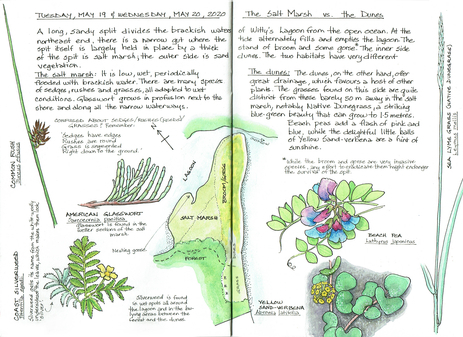 TUESDAY, MAY 19 & WEDNESDAY, MAY 20, 2020
A long, sandy spit divides the brackish water
northeast end, there is a narrow gut where the
spit itself is largely held in place by a thick
of the spit is salt marsh; the outer side is sand
vegetation.
The salt marsh: It is low, wet, periodically
flooded with brackish water. There are many species
of sedges, rushes and grasses, all adapted to wet
conditions. Glasswort grows in profusion next to the
shore and along all the narrow waterways.
Sedges have edges
Rushes are round
Grass is
Right down to the ground.
COMMON RUSH
AMERICAN GLASSWORT
Glasswort is found in the
sections of the salt
marsh
COAST SILVERWEED
Silverweed is found
in wet spots all around
the lagoon and in the
areas between the
forest and the dunes
LAGOON
SALT MARSH
FOREST
The Salt Marsh vs. the Dunes
of Witty's Lagoon from the open ocean. At the
tide alternately fills and empties the lagoon. The
stand of broom and some gorse* The inner side
dunes. The two habitats have very different
The dunes: The dunes, on the other hand, offer
great drainage, which favours a host of other
plants. The grasses found on this side are quite
distinct from those barely 50 m away in the salt
marsh, notably Native Dunegrass, a striking
blue-green beauty that can grow to 1.5 meters.
Beach peas add a flash of pink and
blue, while the delightful little balls
of Yellow Sand-verbena are a hint of
sunshine.
*While the broom and gorse are very invasive
species, any effort to eradicate them might endanger
the survival of the spit.
BEACH PEA
Lathyrus japonicus
YELLOW
SAND-VERBENA
Abronia latifolia
SEA LYME GRASSES (NATIVE DUNEGRASS)